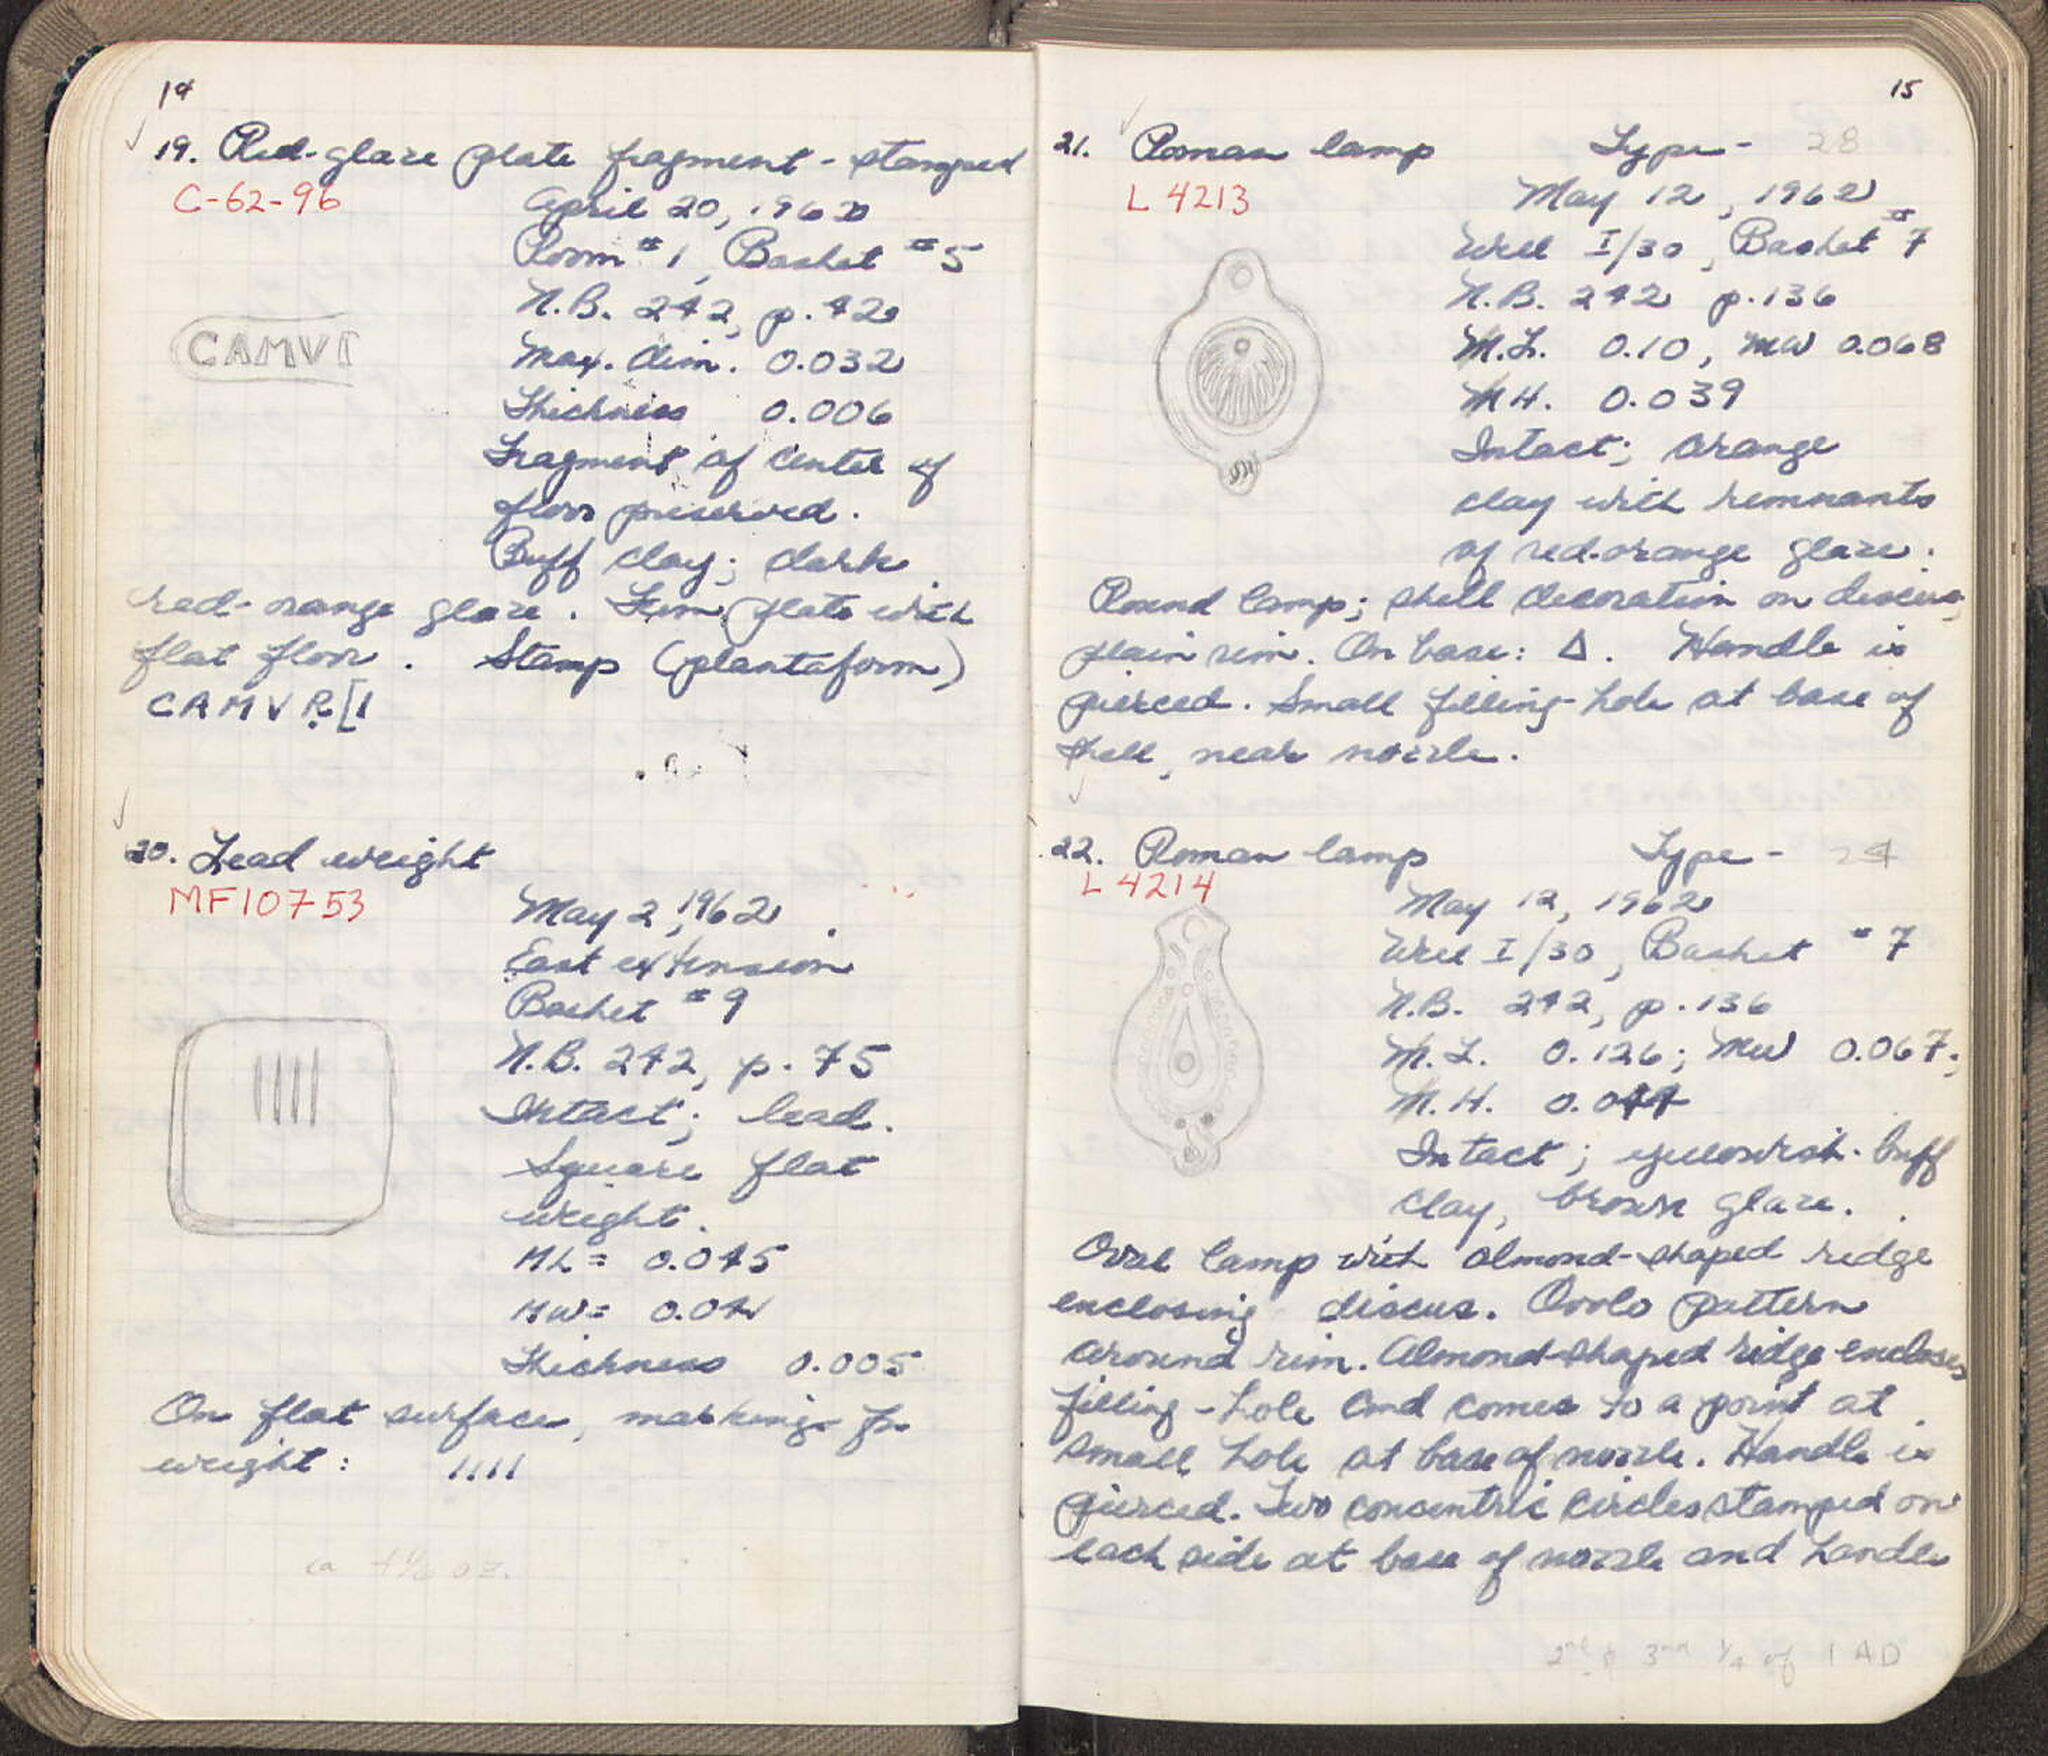 14
19. Red-glaze plate fragment - stamped
C-62-96
April 20, 1962
Room #1, Basket #5
N.B. 242, p. 42
CAMVI
Max. dim. 0.032
Thickness 0.006
Fragment of center of
floor preserved.
Buff clay; dark
red-orange glaze. Firm plate with
flat floor. Stamp (plantaform)
CAMVṚ[I
20. Lead weight
MF10753
May 2, 1962
East extension
Basket #9
N.B. 242, p. 75
Intact; lead.
Square flat
weight.
ML= 0.045
MW= 0.04
Thickness 0.005
On flat surface, markings for
weight: IIII
ca 4½ oz.
15
21. Roman lamp Type - 28
L 4213
May 12, 1962
Well I/30, Basket #7
N.B. 242 p. 136
M.L. 0.10, MW 0.068
MH. 0.039
Intact; orange
clay with remnants
of red-orange glaze.
Round lamp; shell decoration on discus,
plain rim. On base: Δ. Handle is
pierced. Small filling-hole at base of
shell, near nozzle.
22. Roman lamp Type - 24
L 4214
May 12, 1962
Well I/30, Basket #7
N.B. 242, p. 136
M.L. 0.126; MW 0.067;
M.H. 0.044
Intact; yellowish-buff
clay, brown glaze.
Oval lamp with almond-shaped ridge
enclosing discus. Ovolo pattern
around rim. Almond-shaped ridge encloses
filling-hole and comes to a point at
small hole at base of nozzle. Handle is
pierced. Two concentric circles stamped on
each side at base of nozzle and handle
2nd & 3rd ¼ of I AD